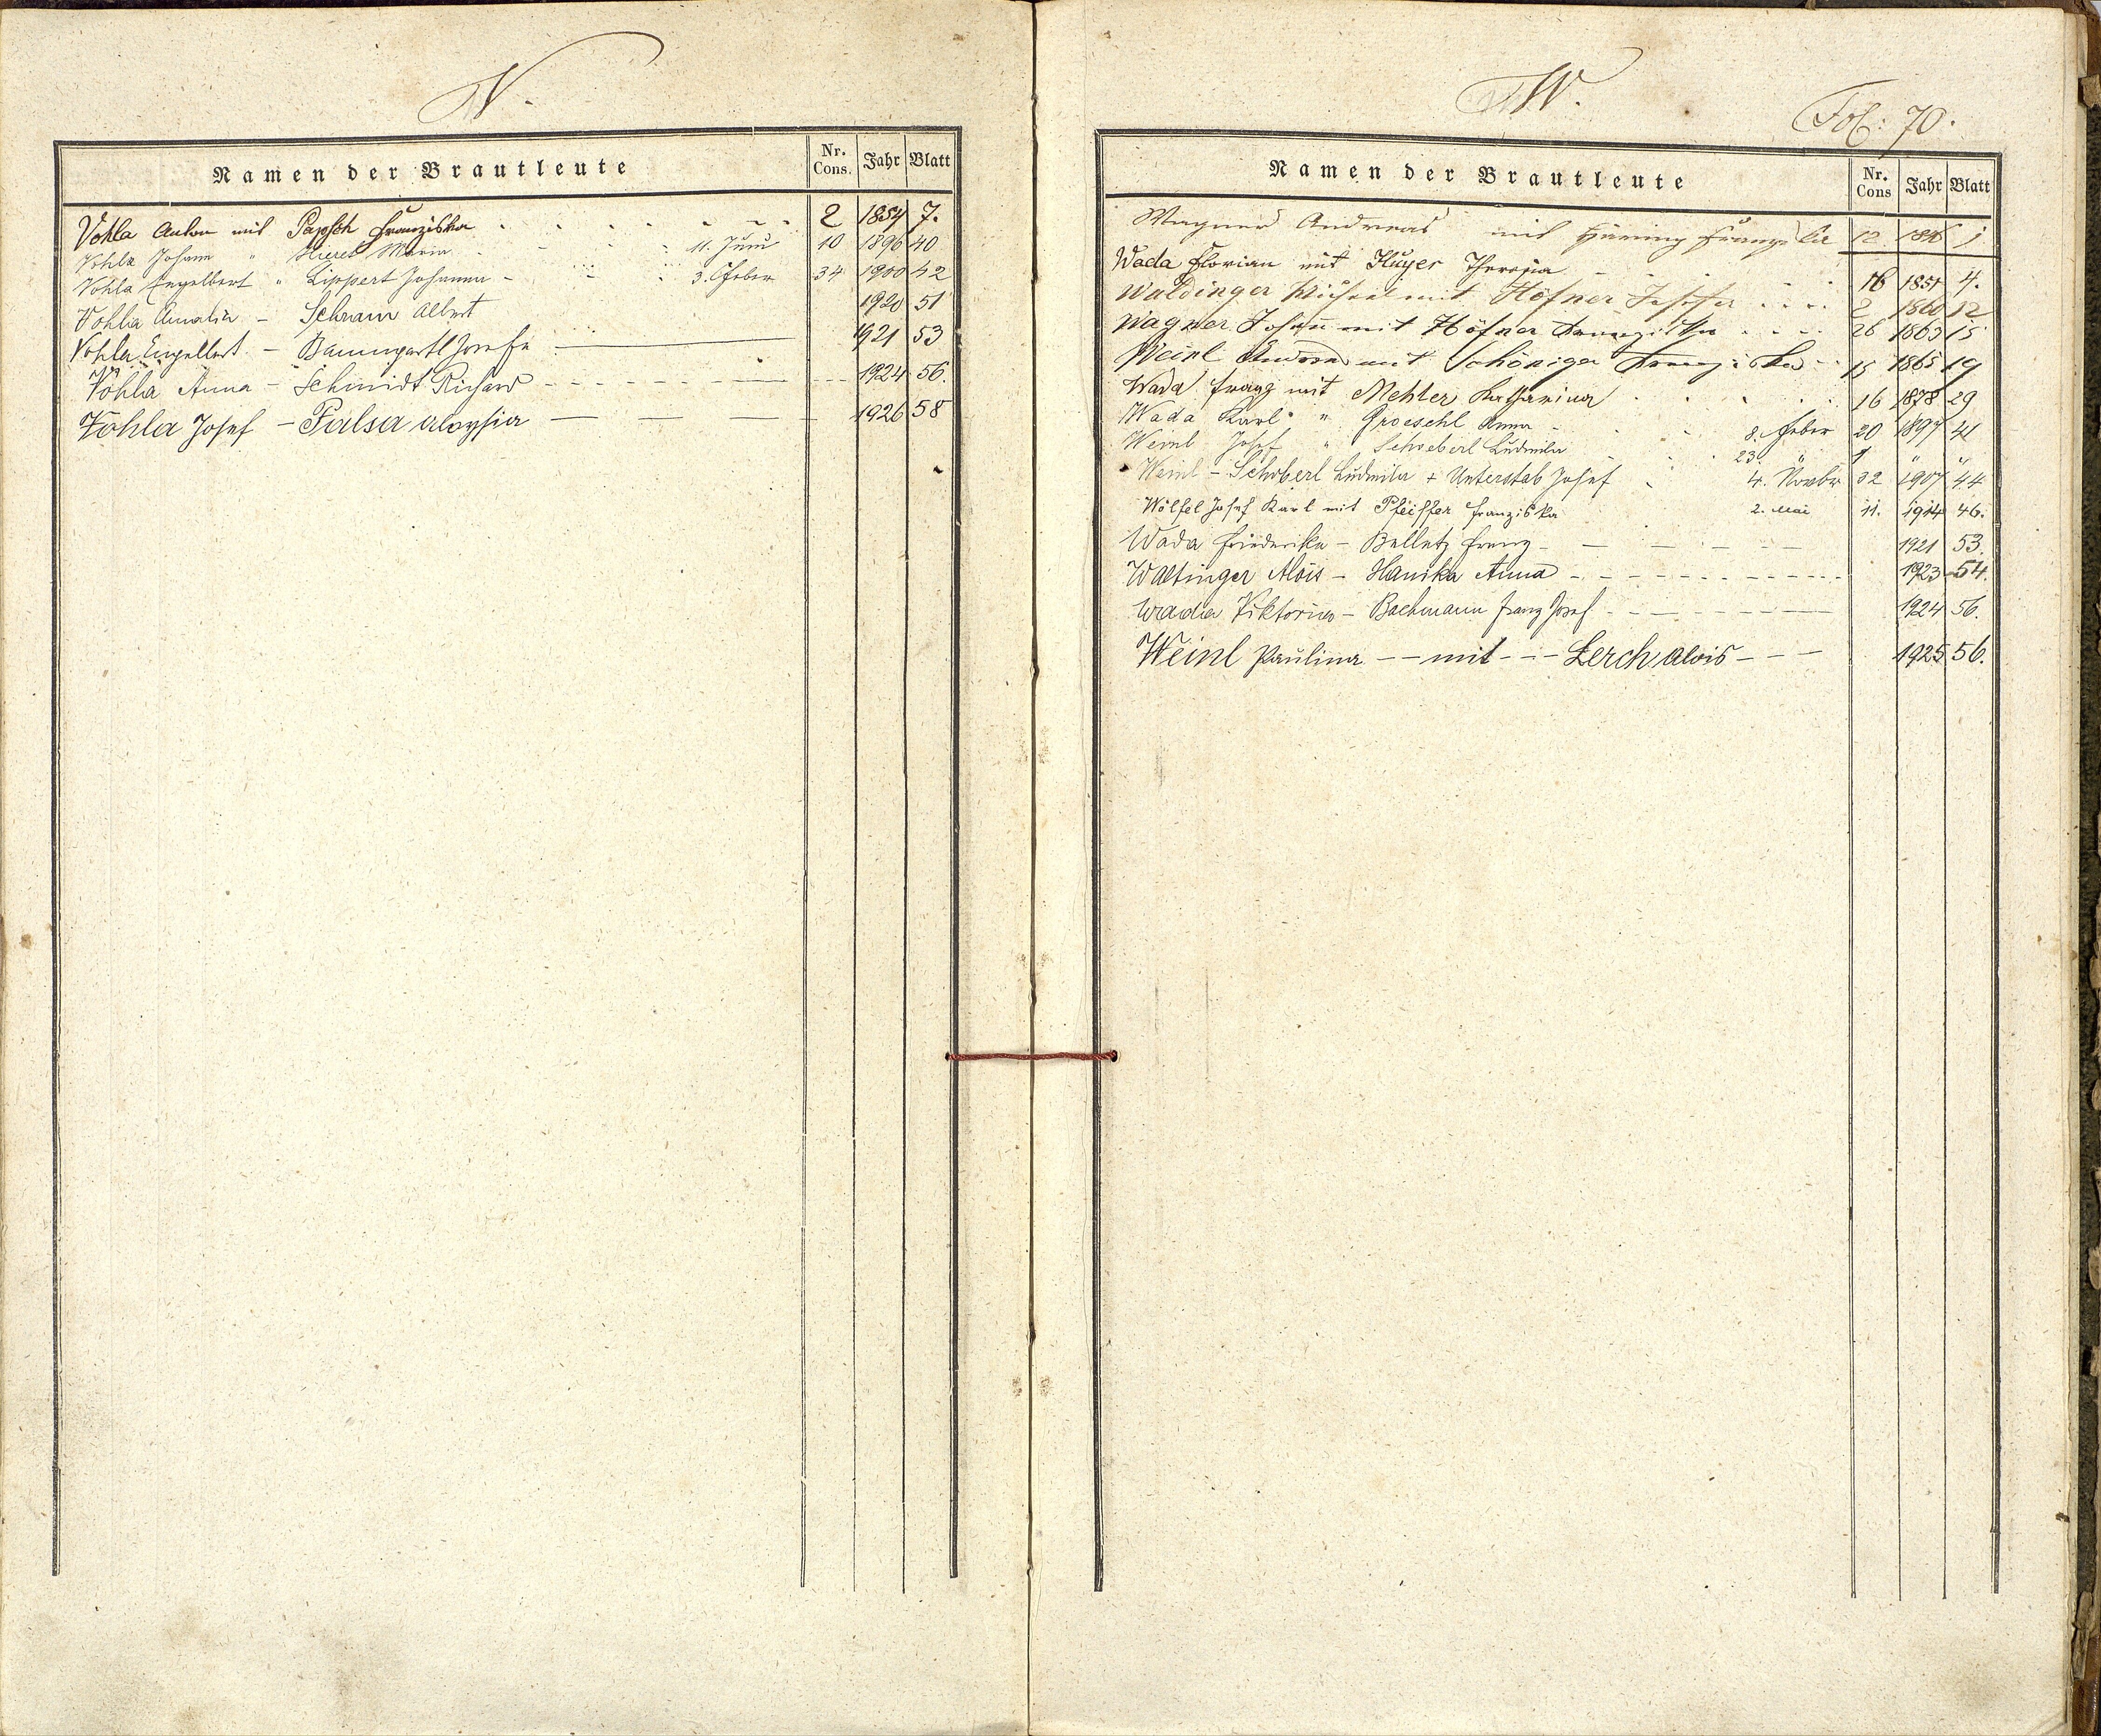 V.
Namen der Brautleute Nr. Cons. Jahr Blatt
Vohla Anton mit Papsch Franziska 2 1854 7.
Vohla Johann " Hieret Maria 11. Juni 10 1896 40
Vohla Engelbert " Lippert Johanna - 3. Feber 34 1900 42
Vohla Amalia - Schram Albert 1920 51
Vohla Engelbert - Baumgartl Josefa 1921 53
Vohla Anna - Schmidt Richard 1924 56.
Vohla Josef - Falsa Aloysia 1926 58
W.
Fol: 70.
Namen der Brautleute Nr. Cons Jahr Blatt
Wagner Andreas mit Häring Franziska 12 1846 1
Wada Florian mit Kluger Theresia 16 1851 4.
Waldinger Michael mit Höfner Josefa 2 1860 12
Wagner Johann mit Höfner Franziska 26 1863 15
Weinl Andreas mit Schöniger Franziska 15 1865 19
Wada Franz mit Mehler Katharina 16 1878 29
Wada Karl " Groeschl Anna - 8. Feber 20 1897 41
Weinl Josef " Schoeberl Ludmila 23. " 1 " "
Weinl - Schoberl Ludmila + Unterstab Josef 4. Novbr 32 1907 44
Wölfel Josef Karl mit Pfeiffer Franziska 2. Mai 11. 1914 46.
Wada Friederika - Belletz Franz 1921 53.
Waltinger Alois - Hanika Anna 1923 54.
Wada Viktoria - Bachmann Franz Josef 1924 56.
Weinl Paulina - mit - Lerch Alois 1925 56.